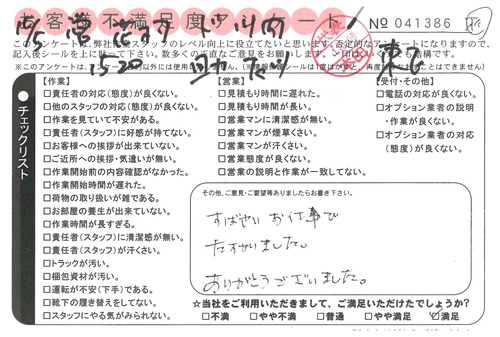 お客様不満足度アンケート
No 041386
このアンケートは、弊社作業スタッフのレベル向上に役立てたいと思います。否定的なアンケートになりますので、
記入後シールを上に貼って下さい。数多くの正直なご意見をお願いします。
チェックリスト
【作業】
□責任者の対応(態度)が良くない。
□他のスタッフの対応(態度)が良くない。
□作業を見ていて不安がある。
□責任者(スタッフ)に好感が持てない。
□お客様への挨拶が出来ていない。
□ご近所への挨拶・気遣いが無い。
□作業開始前の内容確認がなかった。
□作業開始時間が遅れた。
□荷物の取り扱いが雑である。
□お部屋の養生が出来ていない。
□作業時間が長すぎる。
□責任者(スタッフ)に清潔感が無い。
□責任者(スタッフ)が汗くさい。
□トラックが汚い。
□梱包資材が汚い。
□運転が不安(下手)である。
□靴下の履き替えをしてない。
□スタッフにやる気がみられない。
【営業】
□見積もり時間に遅れた。
□見積もり時間が長い。
□営業マンに清潔感が無い。
□営業マンが煙草くさい。
□営業マンが汗くさい。
□営業態度が良くない。
□営業の説明と作業が一致してない。
【受付・その他】
□電話の対応が良くない。
□オプション業者の説明
・作業が良くない。
□オプション業者の対応
(態度)が良くない。
その他、ご意見・ご要望等ありましたらお書き下さい。
すばやいお仕事で
たすかりました。
ありがとうございました。
☆当社をご利用いただきまして、ご満足いただけたでしょうか?
□不満 □やや不満 □普通 □やや満足 ☑満足